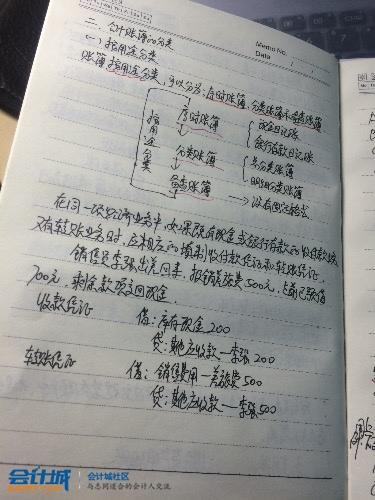 Memo No.
Date / /
二、会计账簿的分类
(一)按用途分类
账簿按用途分类，可以分为：序时账簿、分类账簿和备查账簿
按用途分类
序时账簿
现金日记账
银行存款日记账
分类账簿
总分类账簿
明细分类账簿
备查账簿
没有固定格式
在同一项经济业务中，如果既有现金或银行存款的收付款业务
又有转账业务时，应相应的填制收付款凭证和转账凭证。
销售员李张出差回来，报销差旅费500元，出差前已预借
700元，剩余款项交回现金。
收款凭证
借：库存现金 200
贷：其他应收款—李张 200
转账凭证
借：销售费用—差旅费500
贷：其他应收款—李张500
会计城
会计城社区
与志同道合的会计人交流